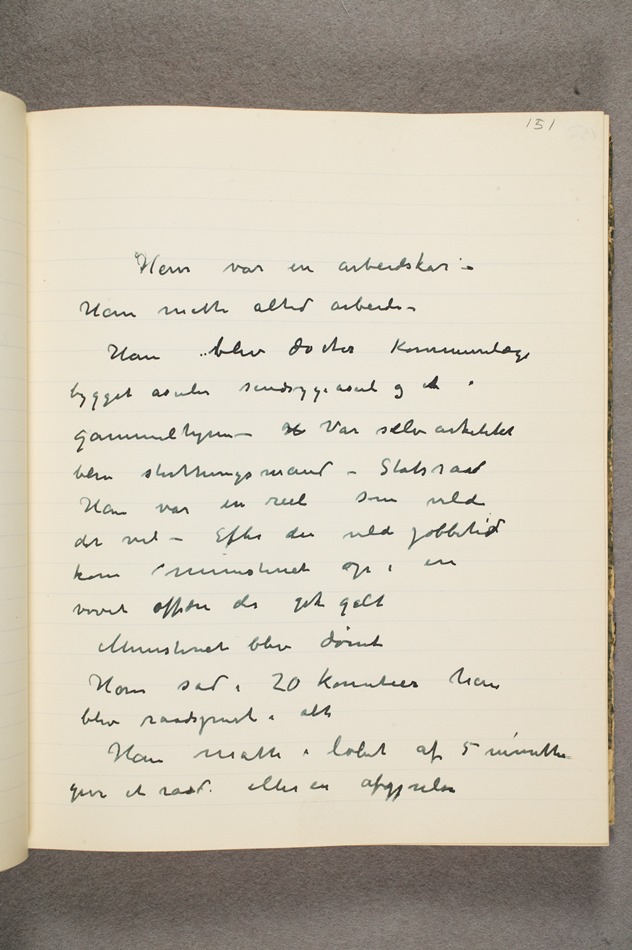 151
Han var en arbeidskar –
Han måtte altid arbeide –
Han blev docter Kommunelæge
bygget asyler sindsygeasyl og et
gammelhjem – Var selv arkitekt
blev stortingsmand – Statsraad
Han var en reel som vilde
det vel – Efter den vilde jobbetid
kom ministeriet op i en
vovet affære der gik galt
Ministeriet blev dømt
Han sad i 20 Komiteer han
blev raadspurt i alt
Han måtte i løbet af 5 minutter
give et raad. eller en afgjørelse